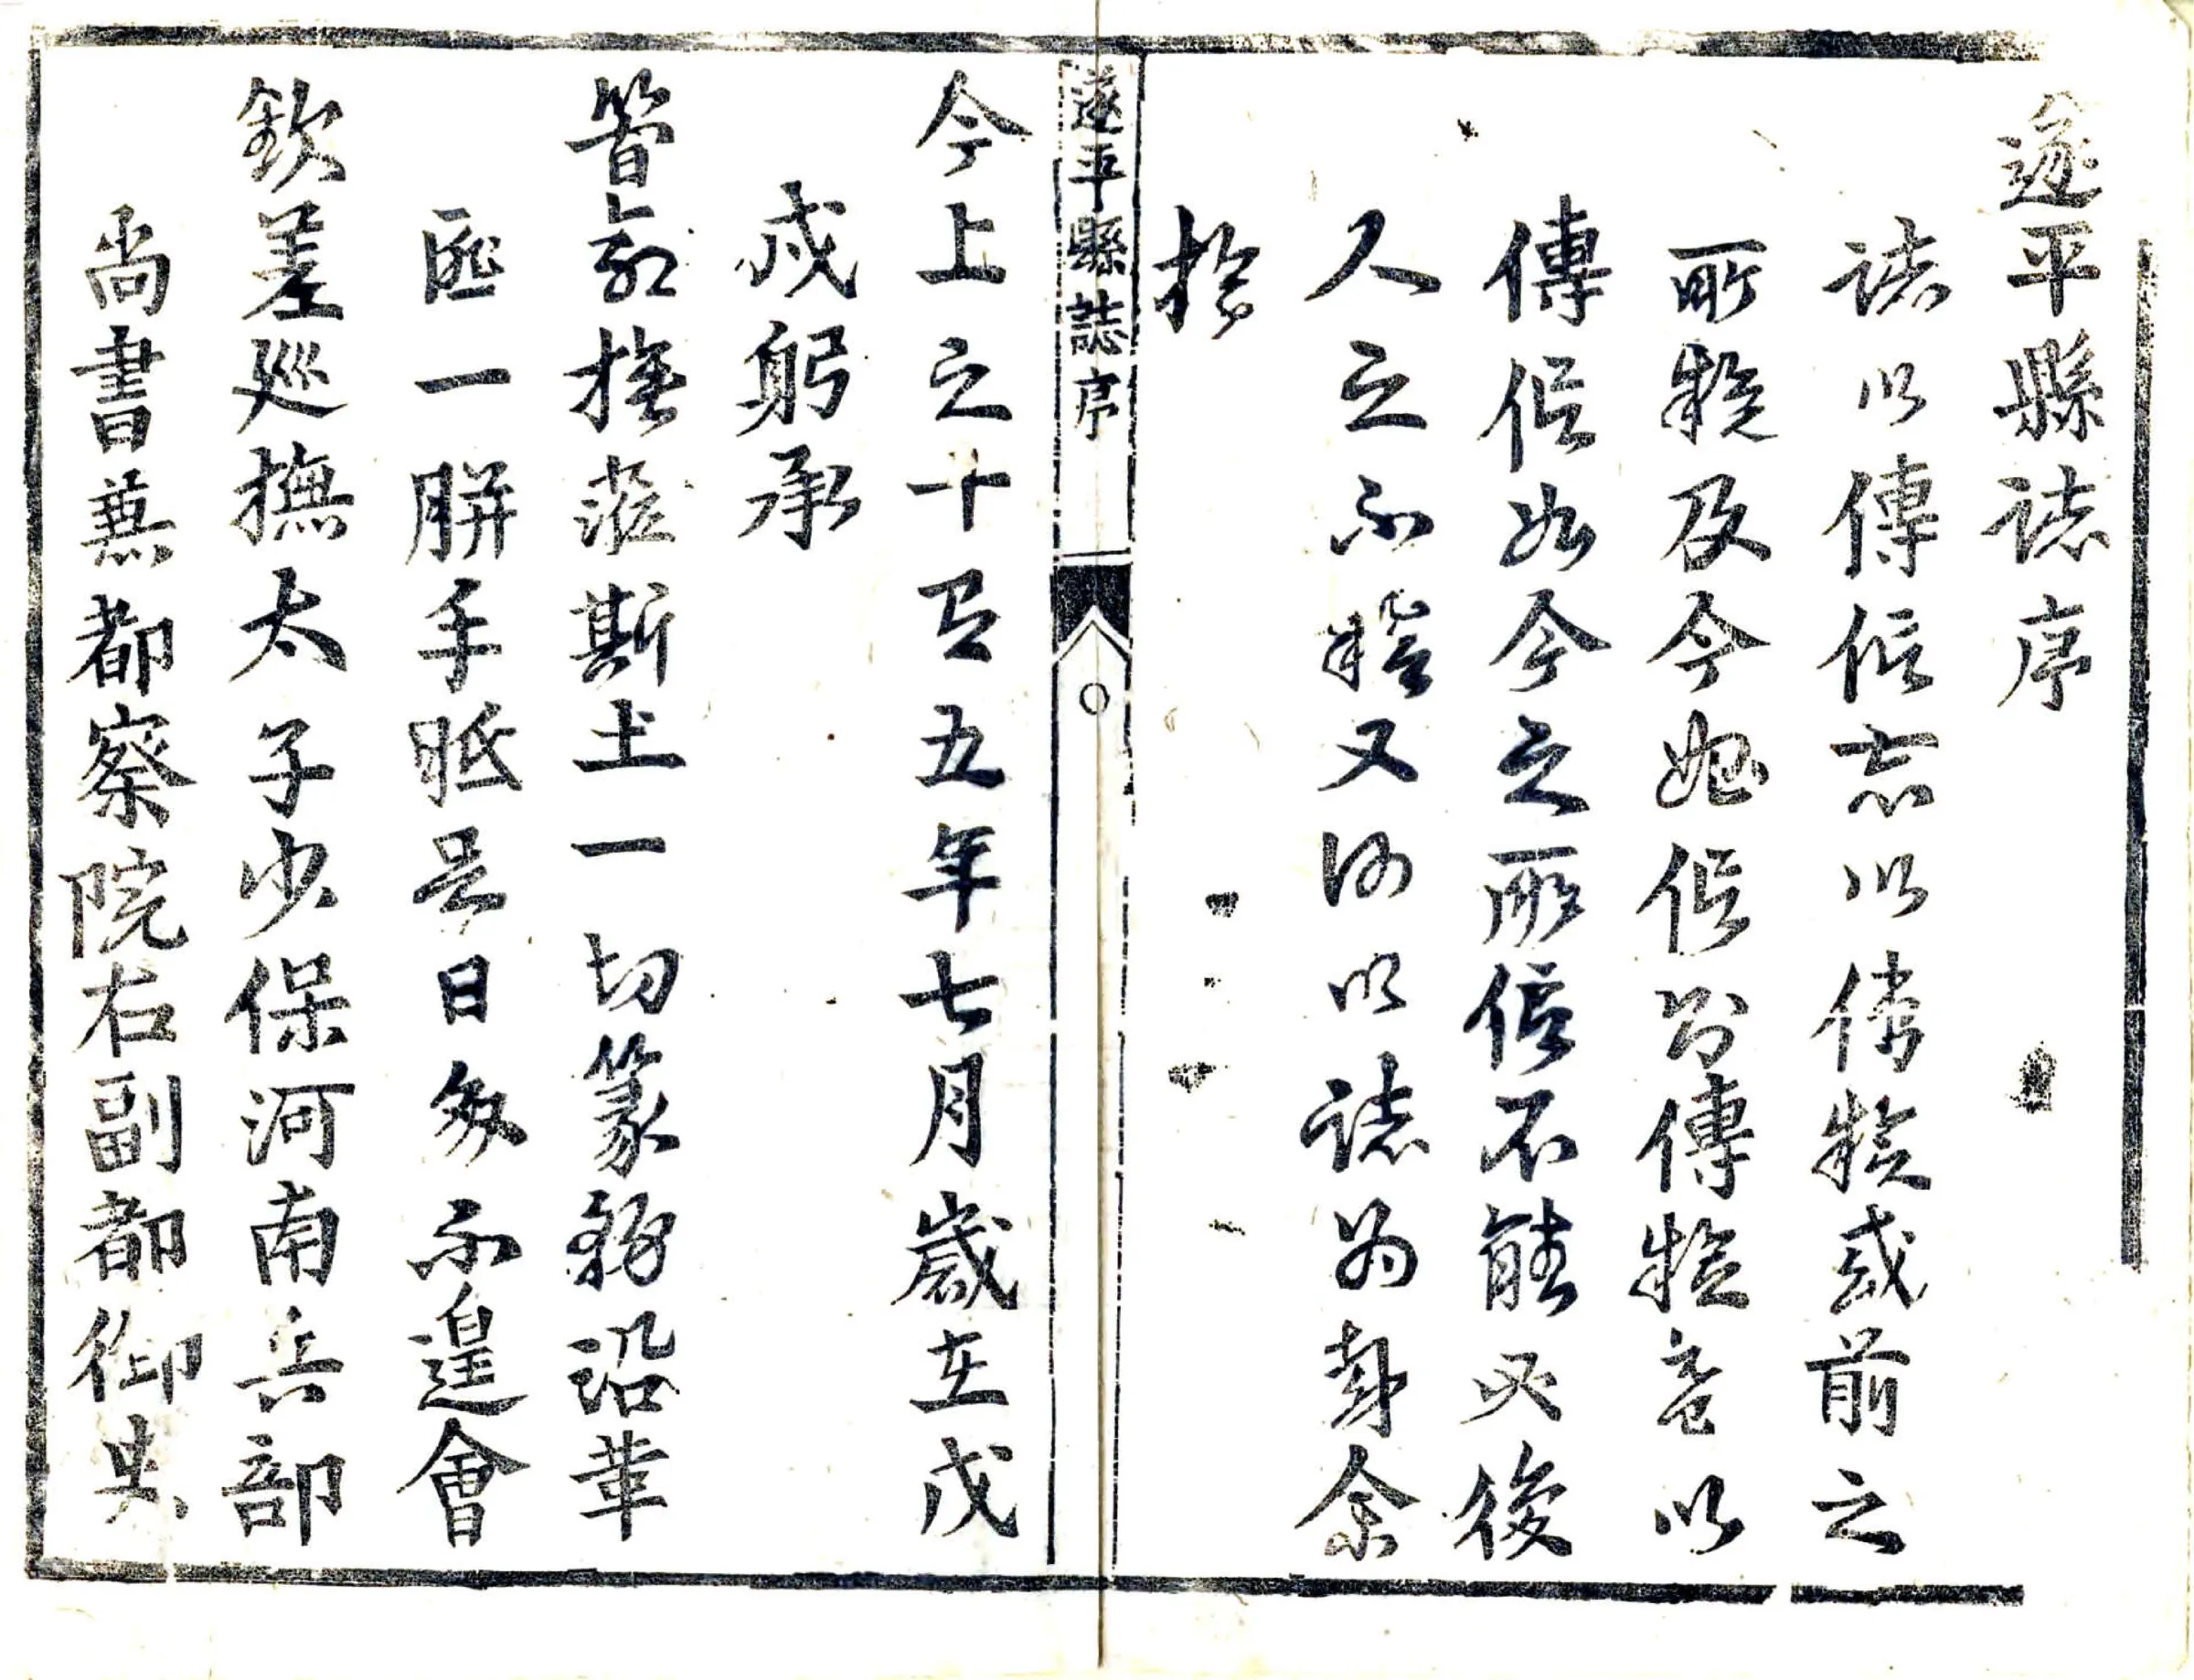 遂平縣誌序
誌以傳信亦以傳疑或前之
所疑及今始信則傳疑竟以
傳信如今之所信不能必後
人之不疑又何以誌為哉余
於
遂平縣誌序
今上之十有五年七月歲在戊
戌躬承
簡命撫蒞斯土一切篆務沿革
匪一胼手胝足日夕不遑會
欽差廵撫太子少保河南兵部
尚書兼都察院右副都御史